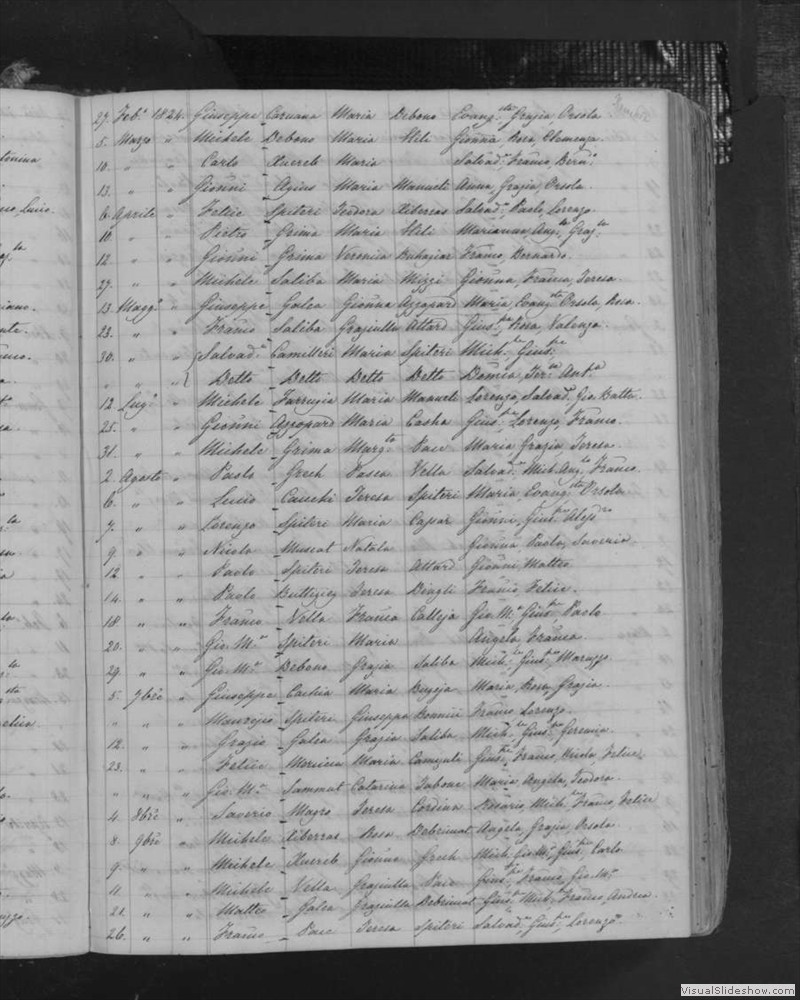 27. Feb.º 1824. Giuseppe Caruana Maria Debono Evang.sta Grazia, Orsola
5. Marzo " Michele Debono Maria Xeli Gionna, Rosa, Clemenza.
10. " " Carlo Xuereb Maria Salvad.e, Franco, Bern.º
13. " " Gionni Agius Maria Manueli Anna, Grazia, Orsola.
6. Aprile " Felice Spiteri Teodora Xiberras Salvad.e, Paolo, Lorenzo.
10. " " Pietro Grima Maria Xeli Marianna, Ang.la, Graz.la
12. " " Gionni Grima Veronica Buhajiar Franco, Bernardo.
27. " " Michele Saliba Maria Mizzi Gionna, Franca, Teresa.
13. Magg.º " Giuseppe Galea Gionna Azzopard Maria, Evang.sta Orsola, Rosa.
23. " " Franco Saliba Graziulla Attard Gius.pa Rosa, Valenza.
30. " " Salvad.e Camilleri Maria Spiteri Mich.le, Gius.pe
" " " Detto Detto Detto Detto Domca, Ter.sa Ant.a
12. Lug.º " Michele Farrugia Maria Manueli Lorenzo, Salvad.e, Gio. Batta.
25. " " Gionni Azzopard Maria Casha Gius.pe Lorenzo, Franco.
31. " " Michele Grima Marg.ta Pace Maria Grazia Teresa.
2. Agosto " Paolo Grech Pasca Vella Salvad.e Mich.Ang.lo Franco.
6. " " Lucio Cauchi Teresa Spiteri Maria Evang.sta Orsola
7. " " Lorenzo Spiteri Maria Cassar Gionni, Gius.pe Aless.ro
9. " " Nicola Muscat Natala Gionna Paola, Saveria.
12. " " Paolo Spiteri Teresa Attard Gionni, Matteo.
14. " " Paolo Buttigieg Teresa Dingli Franco, Felice.
18. " " Franco Vella Franca Calleja Gio. M.a Gius.pe, Paolo
20. " " Gio. M.a Spiteri Maria Angela, Franca.
29. " " Gio. M.a Debono Grazia Saliba Mich.le Gius.pe Maruzzo
5. 7bre " Giuseppe Cachia Maria Bugeja Maria, Rosa, Grazia.
" " " Maurizio Spiteri Giuseppa Bonnici Franco, Lorenzo.
12. " " Grazio Galea Grazia Saliba Mich.le, Gius.pe Geremia.
23. " " Felice Maria Camenzuli Gius.pe, Franco, Nicola, Felice.
" " " Gio. M.a Sammut Catarina Tabone Maria, Angela, Teodora.
4. 8bre " Saverio Magro Teresa Cordina Rosario, Mich.le, Franco, Felice
8. 9bre " Michele Xiberras Rosa Debrincat Angela, Grazia, Orsola.
9. " " Michele Xuereb Gionna Grech Mich.le Gio. M.a, Gius.pe, Carlo
11. " " Michele Vella Graziulla Pace Gius.pe, Franco, Gio. M.a
21. " " Matteo Galea Graziulla Debrincat Gius.pe, Mich.le Franco, Andrea.
26. " " Franco Pace Teresa Spiteri Salvad.e, Gius.pe, Lorenzo.
VisualSlideshow.com